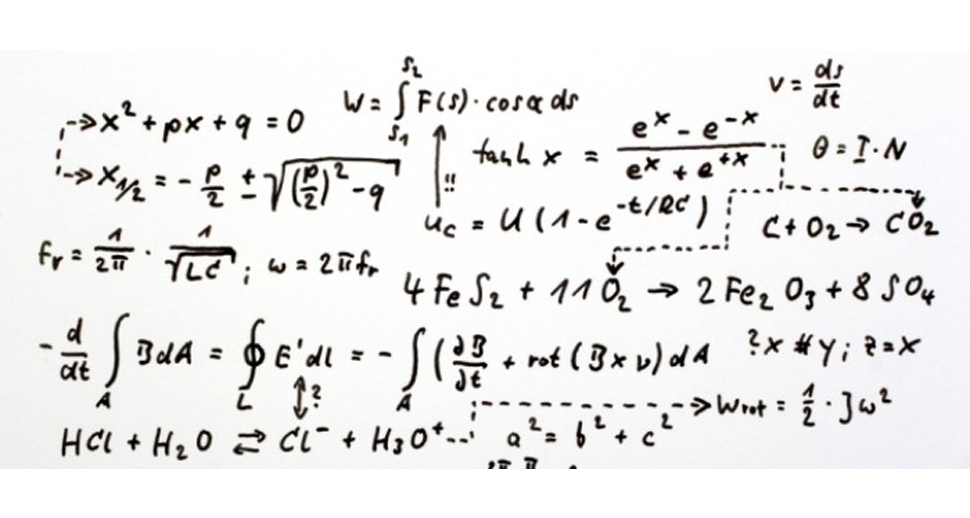 x² + px + q = 0
W = ∫ₛ₁ˢ² F(s) · cos α ds
v = ds/dt
x₁/₂ = - p/2 ± √((p/2)² - q)
!!
tanh x = (eˣ - e⁻ˣ)/(eˣ + e⁺ˣ)
θ = I · N
u_c = U (1 - e^(-t/RC))
C + O₂ → CO₂
fᵣ = 1/2π · 1/√LC ; ω = 2πfᵣ
4 FeS₂ + 11 O₂ → 2 Fe₂O₃ + 8 SO₄
- d/dt ∫_A B dA = ∮_L E' dl = - ∫_A (∂B/∂t + rot (B x v) dA
?x # y; z = x
?
W_rot = 1/2 · J ω²
HCl + H₂O ⇄ Cl⁻ + H₃O⁺
a² = b² + c²